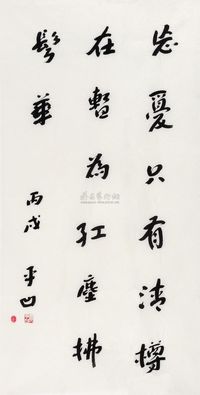 忘憂只有清樽
在暫為紅塵拂
鬢華
丙戌 平凹